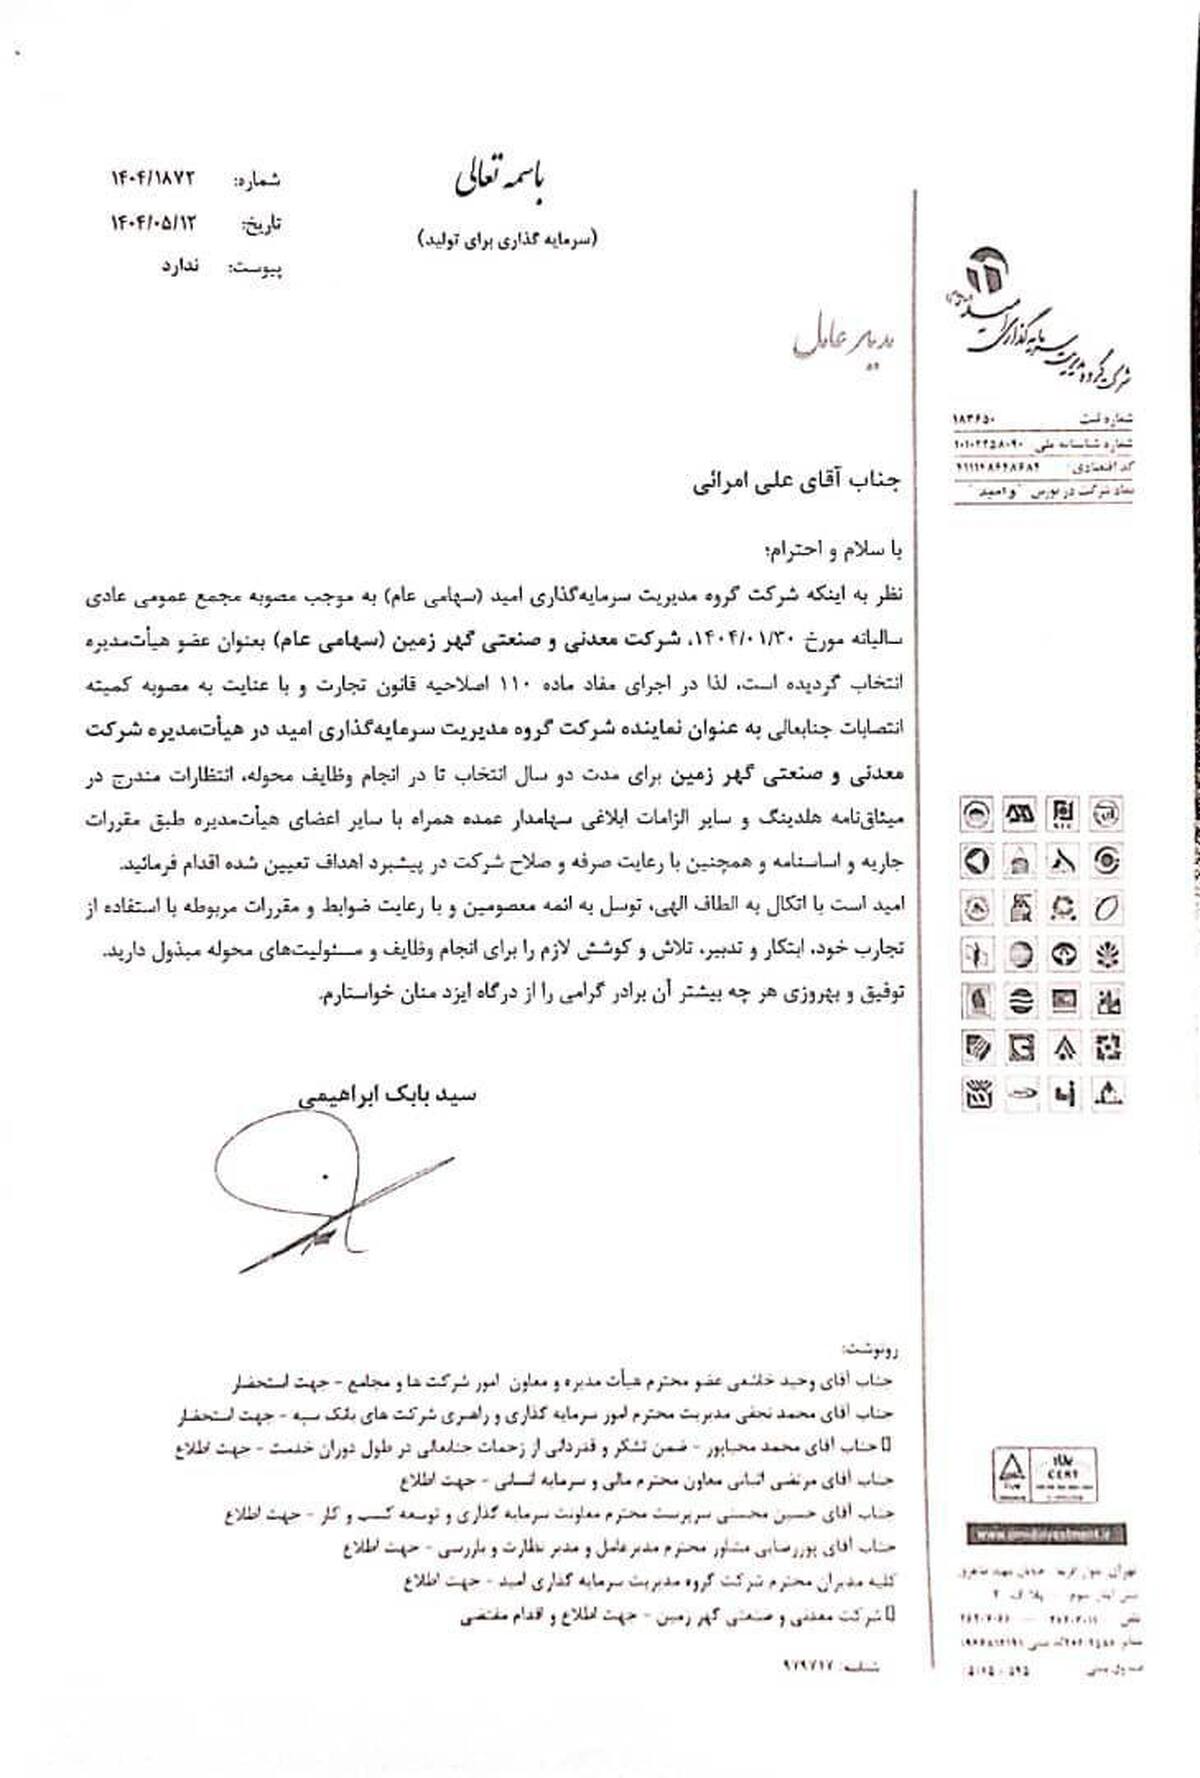 باسمه تعالی
(سرمایه گذاری برای تولید)
شماره: ۱۴۰۴/۱۸۷۲
تاریخ: ۱۴۰۴/۰۵/۱۲
پیوست: ندارد
شرکت گروه مدیریت سرمایه گذاری امید
شماره ثبت ۱۸۳۶۵۰
شماره شناسنامه ملی
کد اقتصادی
نماد شرکت در بورس "وامید"
مدیر عامل
جناب آقای علی امرائی
با سلام و احترام؛
نظر به اینکه شرکت گروه مدیریت سرمایه‌گذاری امید (سهامی عام) به موجب مصوبه مجمع عمومی عادی
سالیانه مورخ ۱۴۰۴/۰۱/۳۰، شرکت معدنی و صنعتی گهر زمین (سهامی عام) بعنوان عضو هیأت‌مدیره
انتخاب گردیده است، لذا در اجرای مفاد ماده ۱۱۰ اصلاحیه قانون تجارت و با عنایت به مصوبه کمیته
انتصابات جنابعالی به عنوان نماینده شرکت گروه مدیریت سرمایه‌گذاری امید در هیأت‌مدیره شرکت
معدنی و صنعتی گهر زمین برای مدت دو سال انتخاب تا در انجام وظایف محوله، انتظارات مندرج در
میثاق‌نامه هلدینگ و سایر الزامات ابلاغی سهامدار عمده همراه با سایر اعضای هیأت‌مدیره طبق مقررات
جاریه و اساسنامه و همچنین با رعایت صرفه و صلاح شرکت در پیشبرد اهداف تعیین شده اقدام فرمائید.
امید است با اتکال به الطاف الهی، توسل به ائمه معصومین و با رعایت ضوابط و مقررات مربوطه با استفاده از
تجارب خود، ابتکار و تدبیر، تلاش و کوشش لازم را برای انجام وظایف و مسئولیت‌های محوله مبذول دارید.
توفیق و بهروزی هر چه بیشتر آن برادر گرامی را از درگاه ایزد منان خواستارم.
سید بابک ابراهیمی
رونوشت:
جناب آقای وحید خاشعی عضو محترم هیأت مدیره و معاون امور شرکت ها و مجامع - جهت استحضار
جناب آقای محمد نجفی مدیریت محترم امور سرمایه گذاری و راهبری شرکت های بانک سپه - جهت استحضار
جناب آقای محمد محیاپور - ضمن تشکر و قدردانی از زحمات جنابعالی در طول دوران خدمت - جهت اطلاع
جناب آقای مرتضی اثباتی معاون محترم مالی و سرمایه انسانی - جهت اطلاع
جناب آقای حسین محسنی سرپرست محترم معاونت سرمایه گذاری و توسعه کسب و کار - جهت اطلاع
جناب آقای پوررضایی مشاور محترم مدیرعامل و مدیر نظارت و بازرسی - جهت اطلاع
کلیه مدیران محترم شرکت گروه مدیریت سرمایه گذاری امید - جهت اطلاع
شرکت معدنی و صنعتی گهر زمین - جهت اطلاع و اقدام مقتضی
شناسه: ۹۷۹۷۱۷
CERT
www.omidinvestment.ir